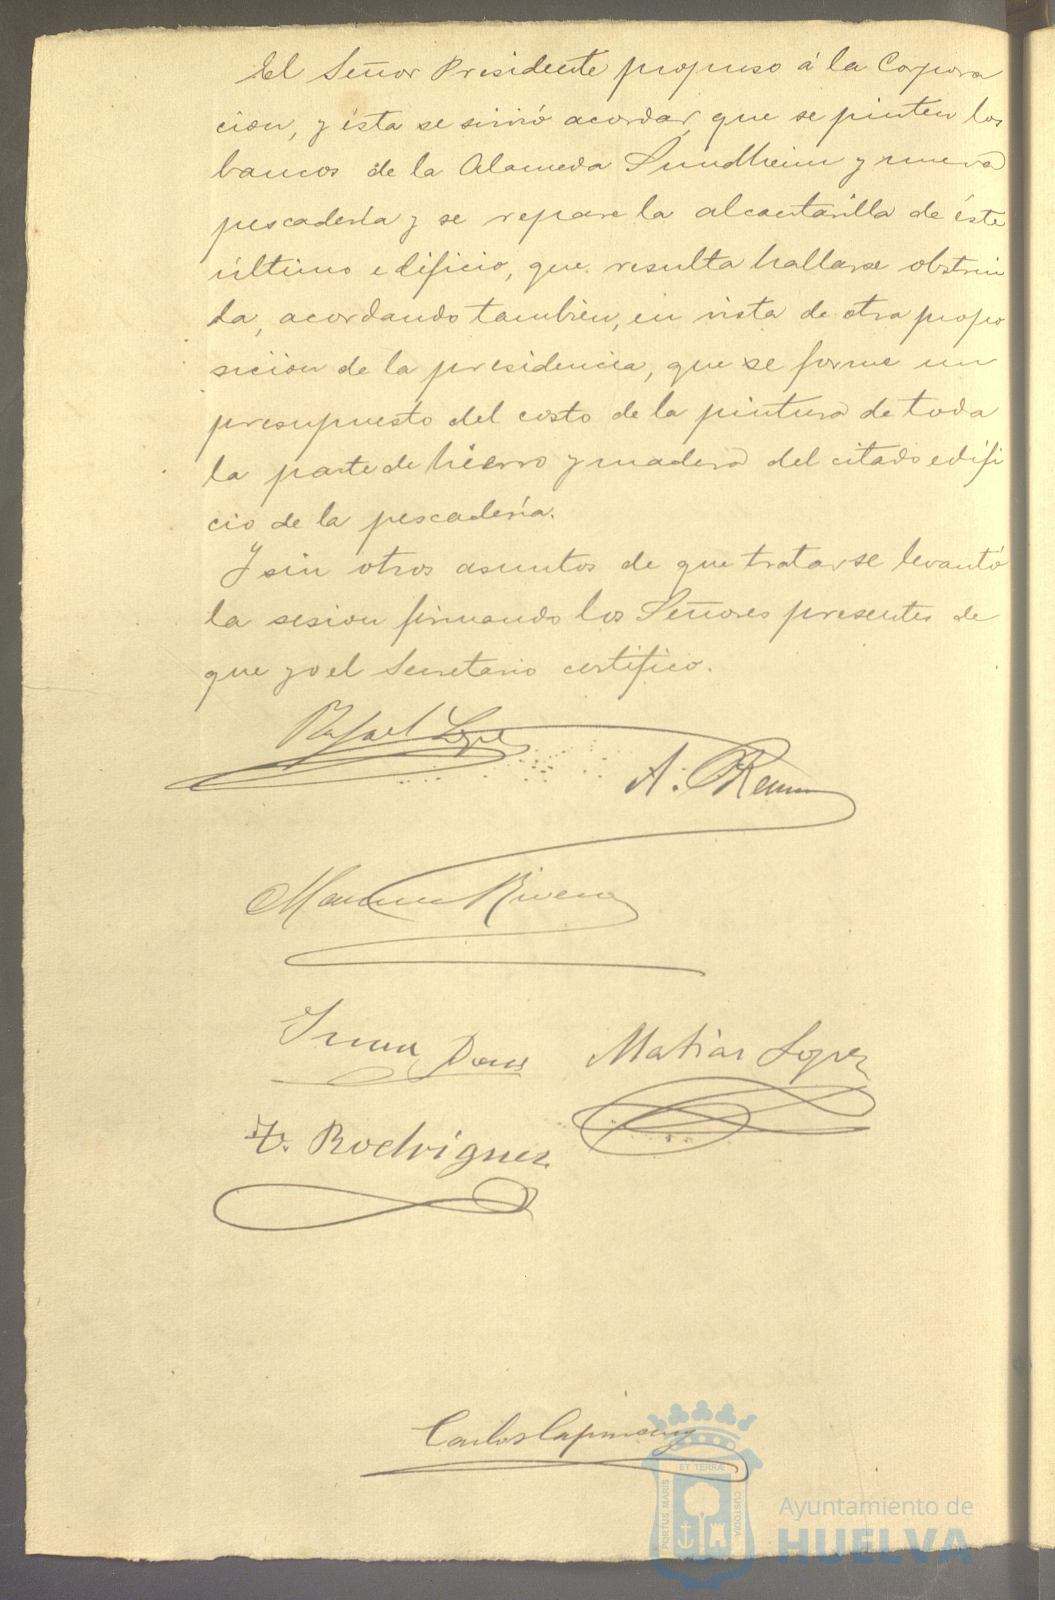 El Señor Presidente propuso á la Corpora
cion, y ésta se sirvió acordar, que se pinten los
bancos de la Alameda Sundheim y nueva
pescadería y se repare la alcantarilla de éste
último edificio, que resulta hallarse obstrui
da, acordando tambien, en vista de otra propo
sicion de la presidencia, que se forme un
presupuesto del costo de la pintura de toda
la parte de hierro y madera del citado edifi
cio de la pescadería.
Y sin otros asuntos de que tratar se levantó
la sesion firmando los Señores presentes de
que yo el Secretario certifico.
Rafael Lopez
A.
Rivera
Matias Lopez
Rodriguez
Carlos
ET TERRÆ
PORTUS MARIS
CUSTODIA
Ayuntamiento de
HUELVA